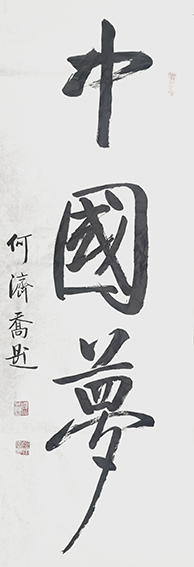 中國夢
何濟喬